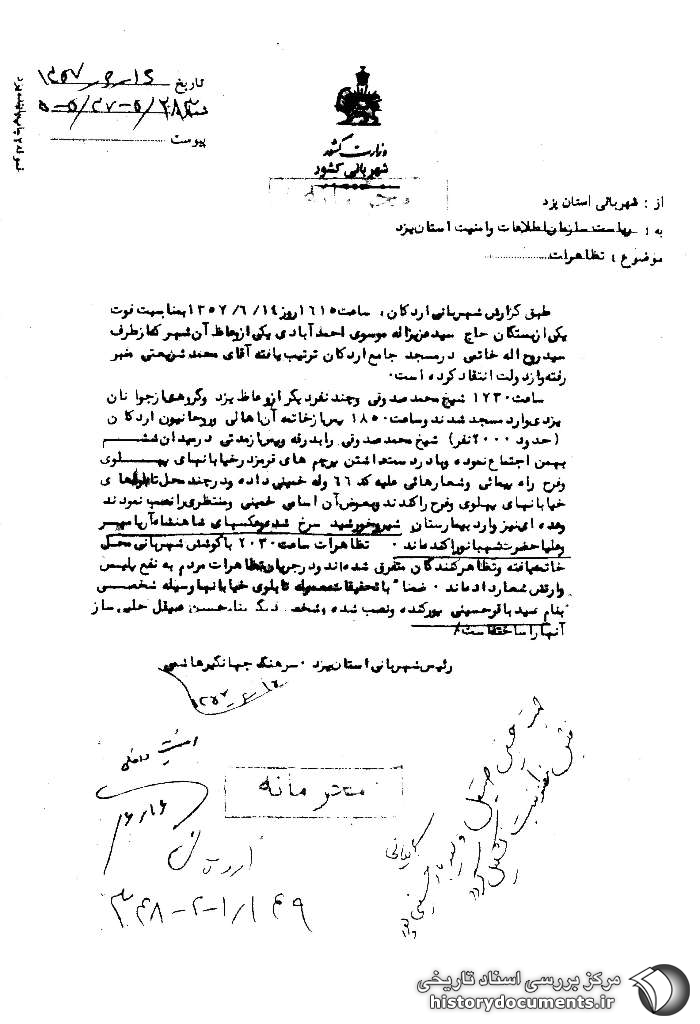 تاریخ ۱۳۵۷-۶-۱۶
شماره ۵/۲۸۳-۵/۲۷-۵
پیوست
وزارت کشور
شهربانی کشور
از : شهربانی استان یزد
به : ریاست سازمان اطلاعات و امنیت استان یزد
موضوع : تظاهرات
طبق گزارش شهربانی اردکان ، ساعت ۱۶۱۵ روز ۱۳۵۷/۶/۱۴ بمناسبت فوت
یکی از بستگان حاج سید عزیزاله موسوی احمدآبادی یکی از وعاظ آن شهر که از طرف
سید روح اله خاتمی در مسجد جامع اردکان ترتیب یافته آقای محمد شریعتی منبر
رفته و از دولت انتقاد کرده است .
ساعت ۱۷۳۰ شیخ محمد صدوقی و چند نفر دیگر از وعاظ یزد و گروهی از جوانان
یزدی وارد مسجد شدند و ساعت ۱۸۵۰ پس از خاتمه آن اهالی و روحانیون اردکان
(حدود ۲۰۰۰ نفر) شیخ محمد صدوقی را بدرقه و پس از مدتی در میدان ششم
بهمن اجتماع نموده و با در دست داشتن پرچم های قرمز در خیابانهای پهلوی
و فرح راه پیمائی و شعارهائی علیه کد ۶۶ و له خمینی داده و در چند محل تابلوهای
خیابانهای پهلوی و فرح را کندند و بعوض آن اسامی خمینی و منتظری را نصب نمودند
و عده ای نیز وارد بیمارستان شیر و خورشید سرخ شده و عکسهای شاهنشاه آریامهر
و علیاحضرت شهبانو را کنده اند . تظاهرات ساعت ۲۰۳۰ با کوشش شهربانی محل
خاتمه یافته و تظاهرکنندگان متفرق شده اند و در جریان تظاهرات مردم به نفع پلیس
و ارتش شعار داده اند . ضمناً با تحقیقات معموله تابلوی خیابانها وسیله شخصی
بنام سید باقر حسینی پور کنده و نصب شده و شخص دیگر بنام حسین صیقل حلبی ساز
آنها را ساخته است /
رئیس شهربانی استان یزد . سرهنگ جهانگیر هاشمی
امنیت داخلی
محرمانه
۳۴۸-۲-۱/۱۴۹
مرکز بررسی اسناد تاریخی
historydocuments.ir